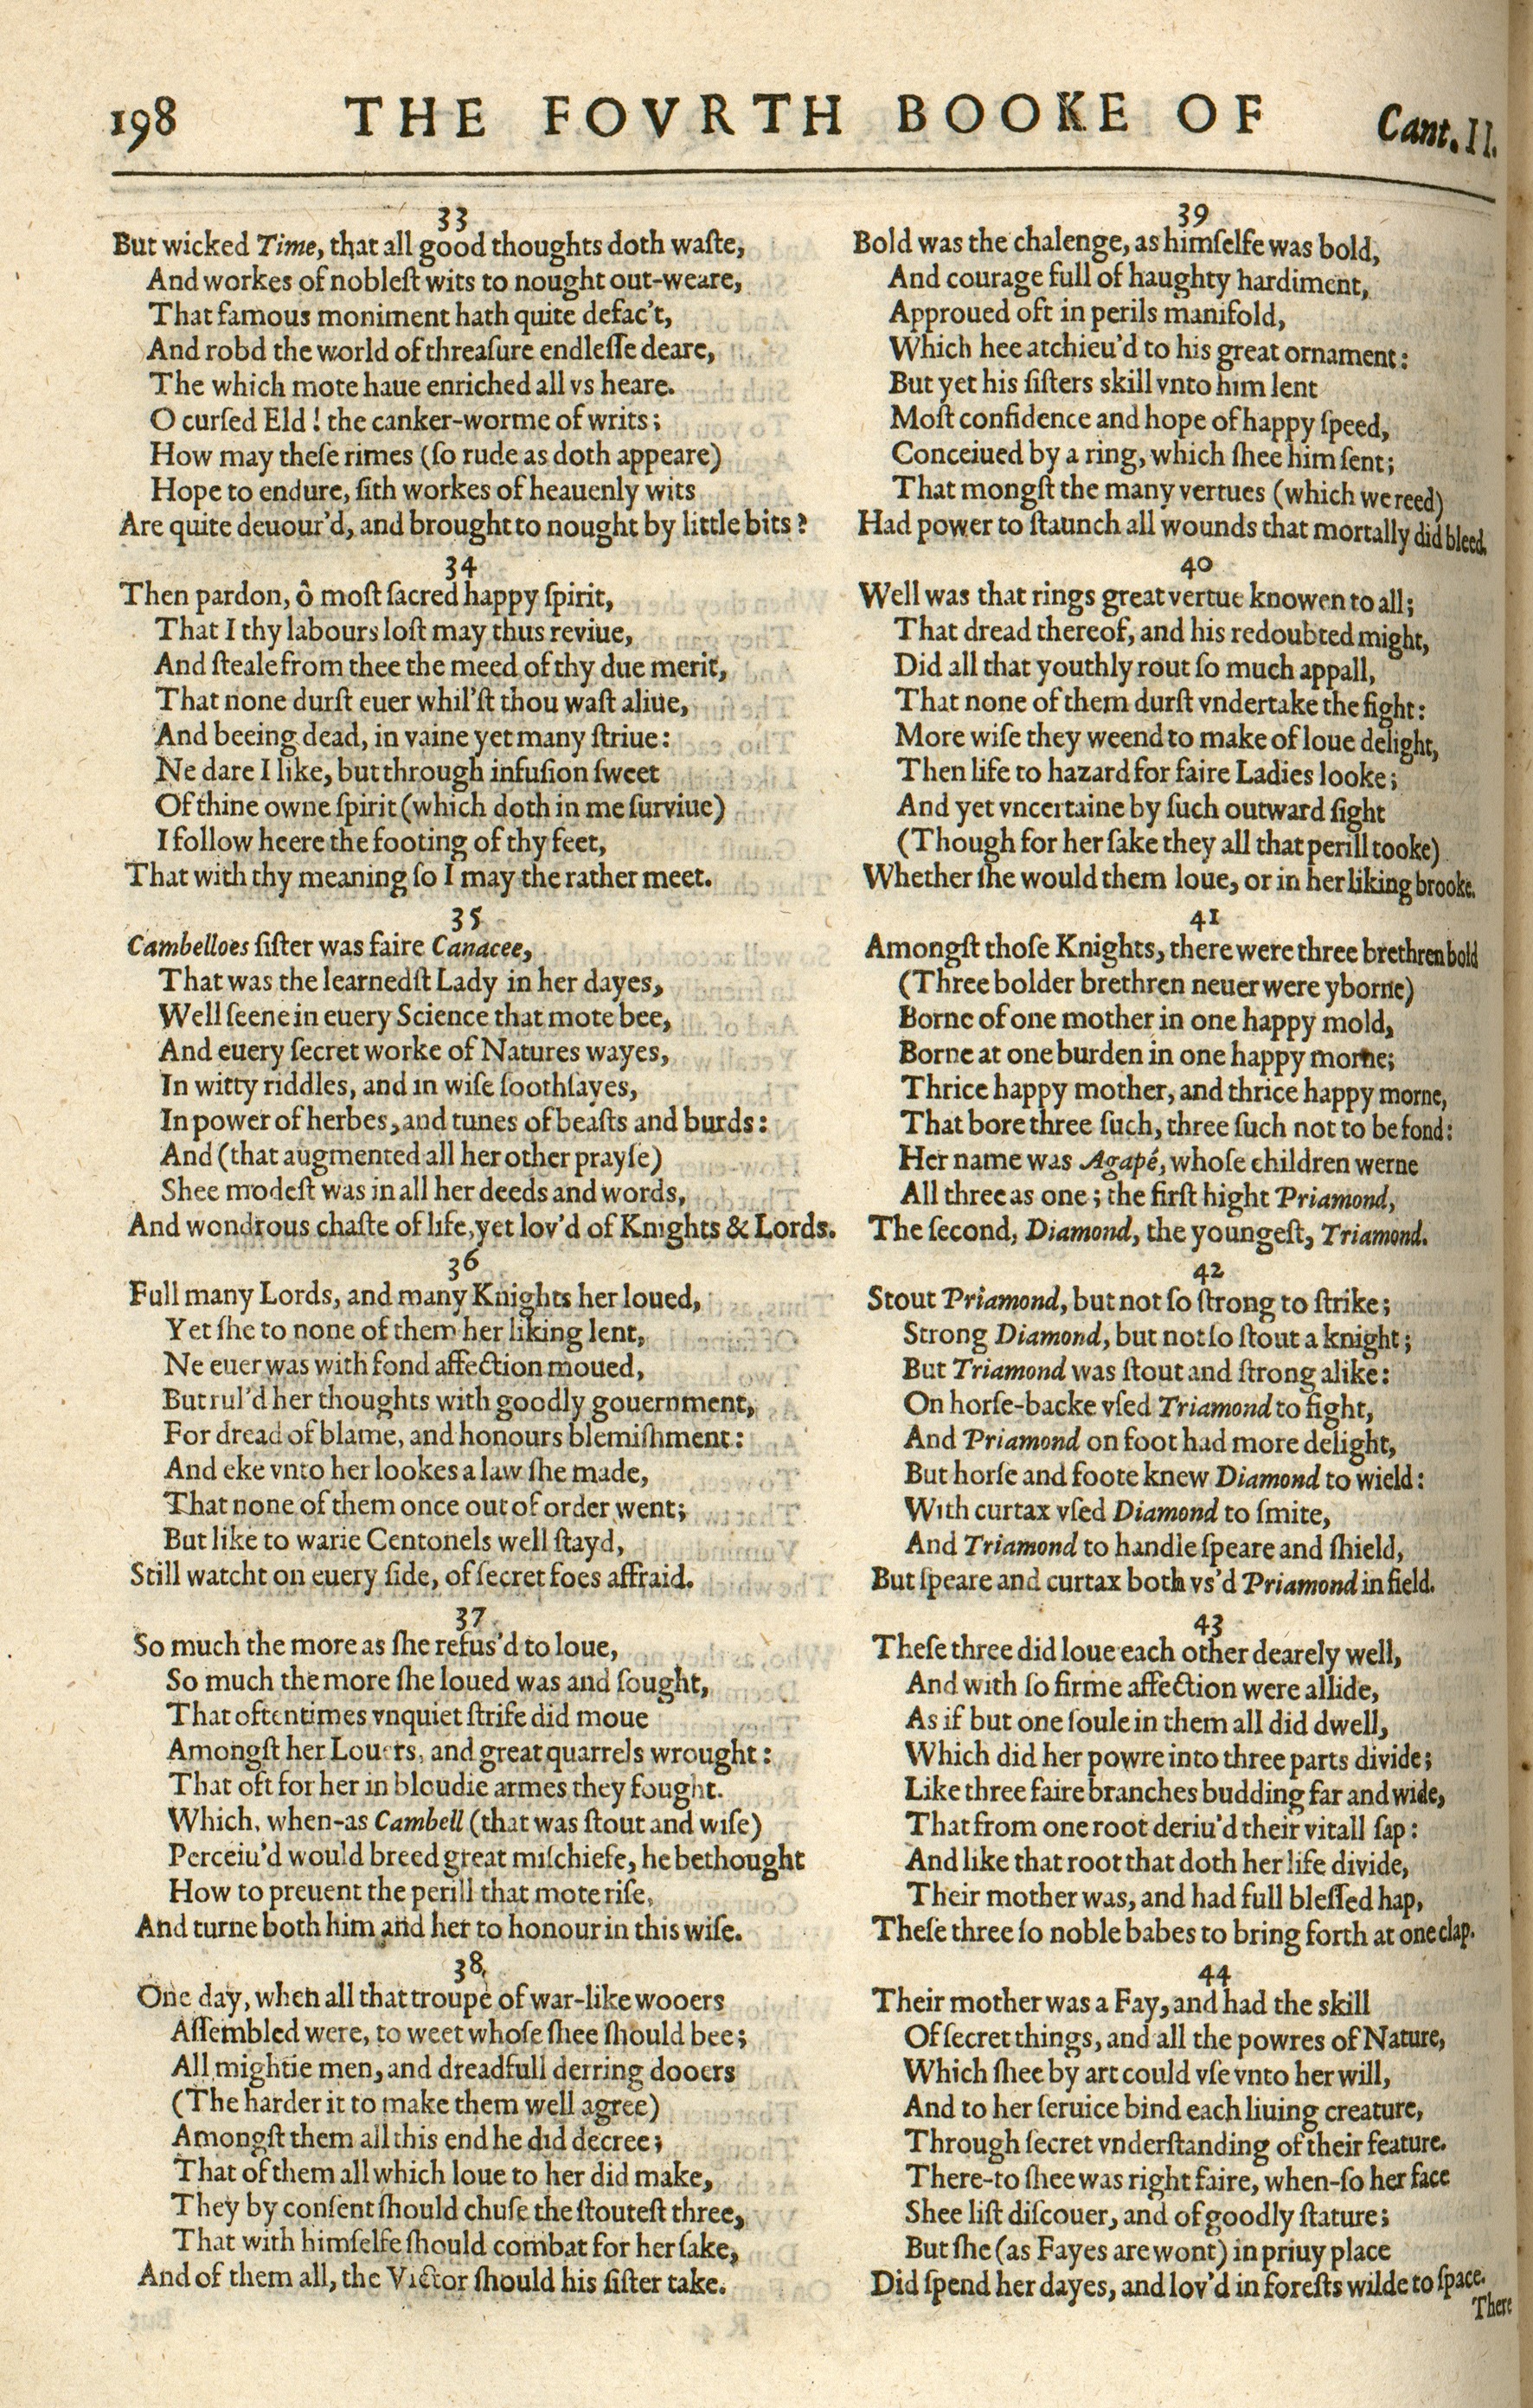 198 THE FOVRTH BOOKE OF Cant. II.
33
But wicked Time, that all good thoughts doth waſte,
And workes of nobleſt wits to nought out-weare,
That famous moniment hath quite defac't,
And robd the world of threaſure endleſſe deare,
The which mote haue enriched all vs heare.
O curſed Eld! the canker-worme of writs;
How may theſe rimes (ſo rude as doth appeare)
Hope to endure, ſith workes of heauenly wits
Are quite deuour'd, and brought to nought by little bits?
34
Then pardon, ô moſt ſacred happy ſpirit,
That I thy labours loſt may thus reviue,
And ſteale from thee the meed of thy due merit,
That none durſt euer whil'ſt thou waſt aliue,
And beeing dead, in vaine yet many ſtriue:
Ne dare I like, but through infuſion ſweet
Of thine owne ſpirit (which doth in me ſurviue)
I follow heere the footing of thy feet,
That with thy meaning ſo I may the rather meet.
35
Cambelloes ſiſter was faire Canacee,
That was the learnedſt Lady in her dayes,
Well ſeene in euery Science that mote bee,
And euery ſecret worke of Natures wayes,
In witty riddles, and in wiſe ſoothſayes,
In power of herbes, and tunes of beaſts and burds:
And (that augmented all her other prayſe)
Shee modeſt was in all her deeds and words,
And wondrous chaſte of life, yet lov'd of Knights & Lords.
36
Full many Lords, and many Knights her loued,
Yet ſhe to none of them her liking lent,
Ne euer was with fond affection moued,
But rul'd her thoughts with goodly gouernment,
For dread of blame, and honours blemiſhment:
And eke vnto her lookes a law ſhe made,
That none of them once out of order went;
But like to warie Centonels well ſtayd,
Still watcht on euery ſide, of ſecret foes affraid.
37
So much the more as ſhe refus'd to loue,
So much the more ſhe loued was and ſought,
That oftentimes vnquiet ſtrife did moue
Amongſt her Louers, and great quarrels wrought:
That oft for her in bloudie armes they fought.
Which, when-as Cambell (that was ſtout and wiſe)
Perceiu'd would breed great miſchiefe, he bethought
How to preuent the perill that mote riſe,
And turne both him and her to honour in this wiſe.
38
One day, when all that troupe of war-like wooers
Aſſembled were, to weet whoſe ſhee ſhould bee;
All mightie men, and dreadfull derring dooers
(The harder it to make them well agree)
Amongſt them all this end he did decree;
That of them all which loue to her did make,
They by conſent ſhould chuſe the ſtouteſt three,
That with himſelfe ſhould combat for her ſake,
And of them all, the Victor ſhould his ſiſter take.
39
Bold was the chalenge, as himſelfe was bold,
And courage full of haughty hardiment,
Approued oft in perils manifold,
Which hee atchieu'd to his great ornament:
But yet his ſiſters skill vnto him lent
Moſt confidence and hope of happy ſpeed,
Conceiued by a ring, which ſhee him ſent;
That mongſt the many vertues (which we reed)
Had power to ſtaunch all wounds that mortally did bleed.
40
Well was that rings great vertue knowen to all;
That dread thereof, and his redoubted might,
Did all that youthly rout ſo much appall,
That none of them durſt vndertake the fight:
More wiſe they weend to make of loue delight,
Then life to hazard for faire Ladies looke;
And yet vncertaine by ſuch outward ſight
(Though for her ſake they all that perill tooke)
Whether ſhe would them loue, or in her liking brooke.
41
Amongſt thoſe Knights, there were three brethren bold
(Three bolder brethren neuer were yborne)
Borne of one mother in one happy mold,
Borne at one burden in one happy morne;
Thrice happy mother, and thrice happy morne,
That bore three ſuch, three ſuch not to be fond:
Her name was Agapé, whoſe children werne
All three as one; the firſt hight Priamond,
The ſecond, Diamond, the youngeſt, Triamond.
42
Stout Priamond, but not ſo ſtrong to ſtrike;
Strong Diamond, but not ſo ſtout a knight;
But Triamond was ſtout and ſtrong alike:
On horſe-backe vſed Triamond to fight,
And Priamond on foot had more delight,
But horſe and foote knew Diamond to wield:
With curtax vſed Diamond to ſmite,
And Triamond to handle ſpeare and ſhield,
But ſpeare and curtax both vs'd Priamond in field.
43
Theſe three did loue each other dearely well,
And with ſo firme affection were allide,
As if but one ſoule in them all did dwell,
Which did her powre into three parts divide;
Like three faire branches budding far and wide,
That from one root deriu'd their vitall ſap:
And like that root that doth her life divide,
Their mother was, and had full bleſſed hap,
Theſe three ſo noble babes to bring forth at one clap.
44
Their mother was a Fay, and had the skill
Of ſecret things, and all the powres of Nature,
Which ſhee by art could vſe vnto her will,
And to her ſeruice bind each liuing creature,
Through ſecret vnderſtanding of their feature.
There-to ſhee was right faire, when-ſo her face
Shee liſt diſcouer, and of goodly ſtature;
But ſhe (as Fayes are wont) in priuy place
Did ſpend her dayes, and lov'd in foreſts wilde to ſpace.
There